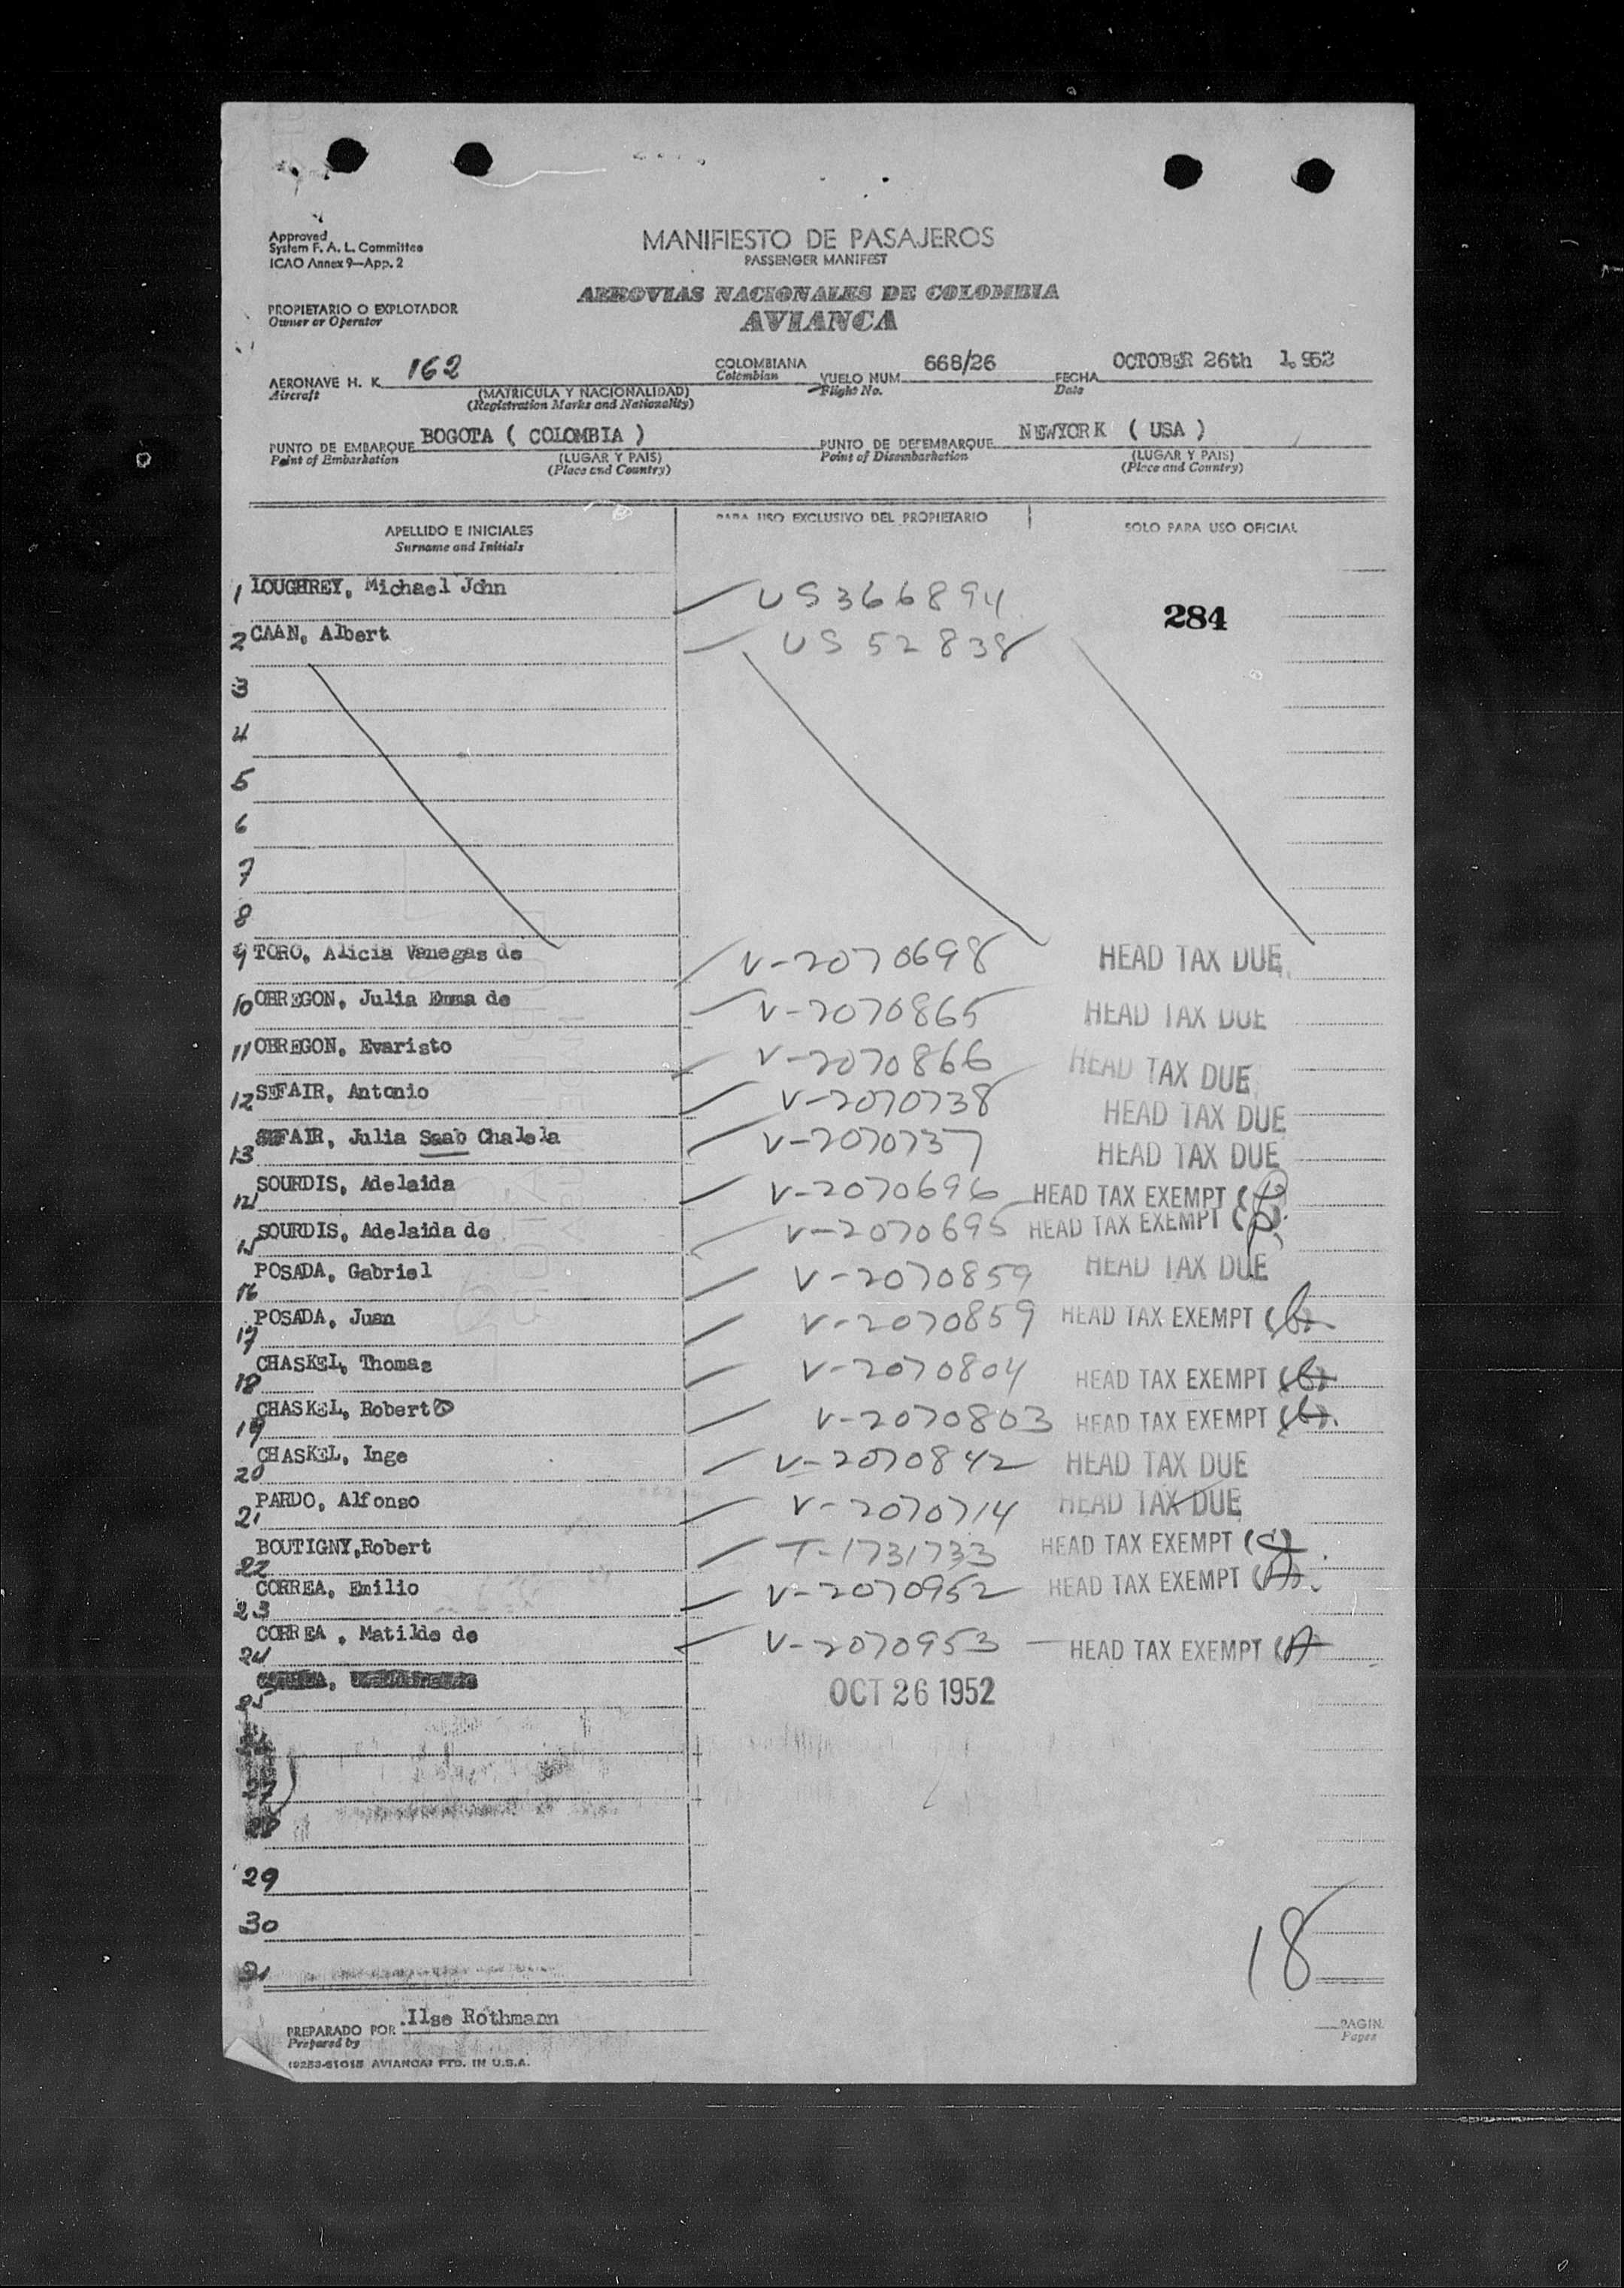 Approved
System F. A. L. Committee
ICAO Annex 9—App. 2
MANIFIESTO DE PASAJEROS
PASSENGER MANIFEST
PROPIETARIO O EXPLOTADOR
Owner or Operator
AEROVIAS NACIONALES DE COLOMBIA
AVIANCA
AERONAVE H. K. 162 COLOMBIANA VUELO NUM. 668/26 FECHA OCTOBER 26th 1.952
Aircraft (MATRICULA Y NACIONALIDAD) Colombian Flight No. Date
(Registration Marks and Nationality)
PUNTO DE EMBARQUE BOGOTA ( COLOMBIA ) PUNTO DE DESEMBARQUE NEWYORK ( USA )
Point of Embarkation (LUGAR Y PAIS) Point of Disembarkation (LUGAR Y PAIS)
(Place and Country) (Place and Country)
APELLIDO E INICIALES PARA USO EXCLUSIVO DEL PROPIETARIO SOLO PARA USO OFICIAL
Surname and Initials
1 LOUGHREY, Michael John US 366894
284
2 CAAN, Albert US 52838
3
4
5
6
7
8
9 TORO, Alicia Vanegas de V-2070698 HEAD TAX DUE
10 OBREGON, Julia Emma de V-2070865 HEAD TAX DUE
11 OBREGON, Evaristo V-2070866 HEAD TAX DUE
12 SEFAIR, Antonio V-2070738 HEAD TAX DUE
13 SEFAIR, Julia Saab Chalela V-2070737 HEAD TAX DUE
14 SOURDIS, Adelaida V-2070696 HEAD TAX EXEMPT
15 SOURDIS, Adelaida de V-2070695 HEAD TAX EXEMPT
16 POSADA, Gabriel V-2070859 HEAD TAX DUE
17 POSADA, Juan V-2070859 HEAD TAX EXEMPT
18 CHASKEL, Thomas V-2070804 HEAD TAX EXEMPT
19 CHASKEL, Robert V-2070803 HEAD TAX EXEMPT
20 CHASKEL, Inge V-2070842 HEAD TAX DUE
21 PARDO, Alfonso V-2070714 HEAD TAX DUE
22 BOUTIGNY,Robert T-1731733 HEAD TAX EXEMPT
23 CORREA, Emilio V-2070952 HEAD TAX EXEMPT
24 CORREA , Matilde de V-2070953 — HEAD TAX EXEMPT
25 OCT 26 1952
27
28
29
30
31
18
PREPARADO POR Ilse Rothmann PAGIN.
Prepared by Pages
AVIANCA: PTD. IN U.S.A.